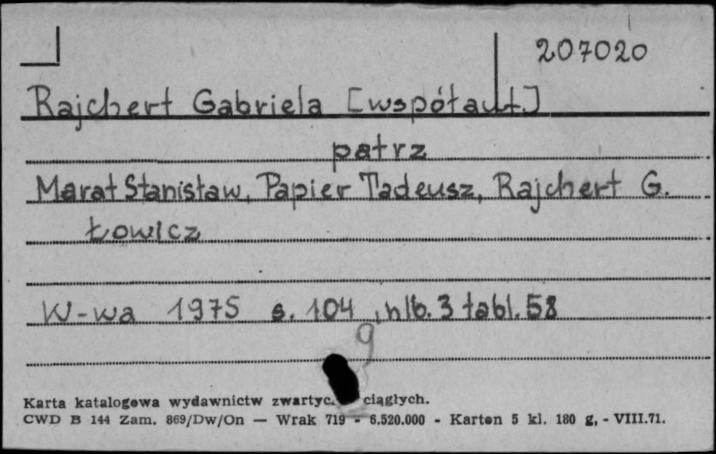 207020
Rajchert Gabriela [współaut.]
patrz
Marat Stanisław, Papier Tadeusz, Rajchert G.
Łowicz
W-wa 1975 s. 104, nlb. 3 tabl. 58
9
Karta katalogowa wydawnictw zwartyc. ciągłych.
CWD B 144 Zam. 869/Dw/On — Wrak 719 - 6.520.000 - Karton 5 kl. 180 g, - VIII.71.